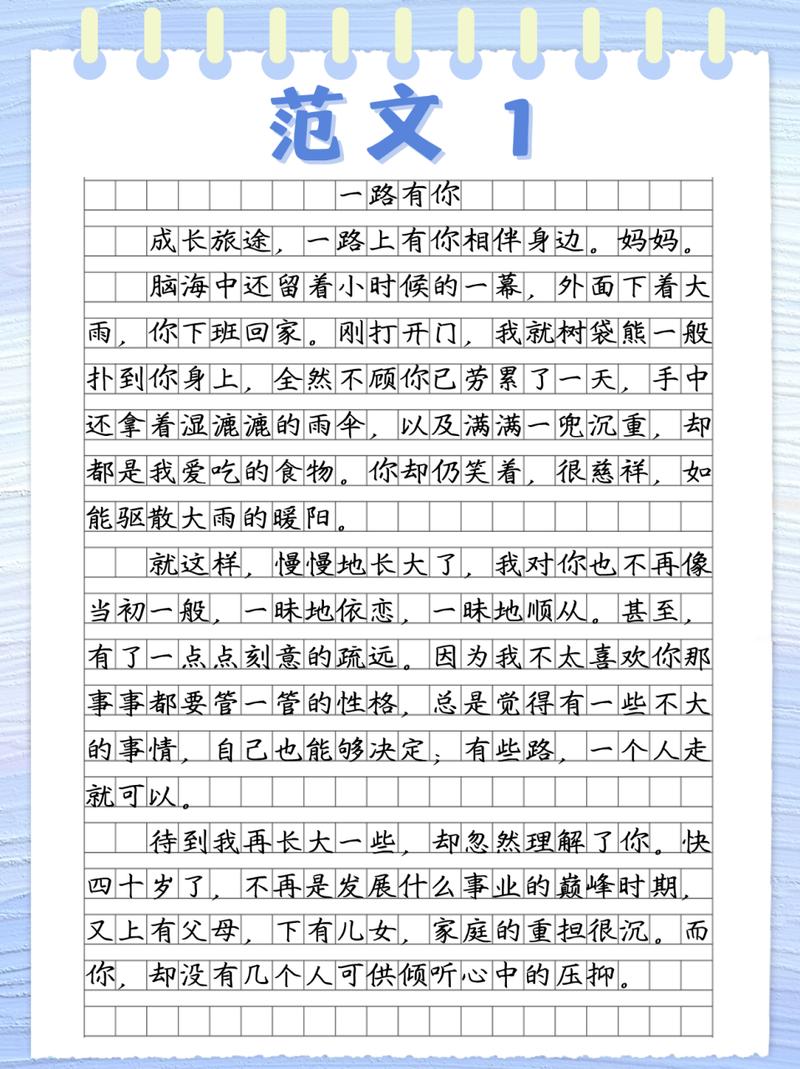 范文 1
一路有你
成长旅途，一路上有你相伴身边。妈妈。
脑海中还留着小时候的一幕，外面下着大
雨，你下班回家。刚打开门，我就树袋熊一般
扑到你身上，全然不顾你已劳累了一天，手中
还拿着湿漉漉的雨伞，以及满满一兜沉重，却
都是我爱吃的食物。你却仍笑着，很慈祥，如
能驱散大雨的暖阳。
就这样，慢慢地长大了，我对你也不再像
当初一般，一昧地依恋，一昧地顺从。甚至，
有了一点点刻意的疏远。因为我不太喜欢你那
事事都要管一管的性格，总是觉得有一些不大
的事情，自己也能够决定；有些路，一个人走
就可以。
待到我再长大一些，却忽然理解了你。快
四十岁了，不再是发展什么事业的巅峰时期，
又上有父母，下有儿女，家庭的重担很沉。而
你，却没有几个人可供倾听心中的压抑。